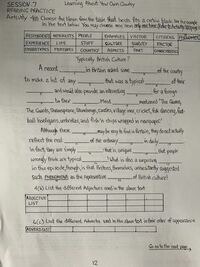 SESSION 7
Learning About Your Own Country
READING PRACTICE
Activity
Choose the known form the task that best fits a certain blank. See the example
in the text below. You may choose more than
RESPONSES INTERESTS PEOPLE EXAMPLES VISITOR CITIZENS
EXPERIENCE LIFE STUFF CULTURE SURVEY FACTOR
STEREOTYPES TYPES COUNTRY ASPECTS THAT
Typically British Culture?
A recent ___ in Britain asked some ___ of the country
to make a list of any ___ that was a typical ___ of their
___ and would also provide an interesting ___ for a foreign
___ to their ___. Most ___ mentioned "The Queen,
The Guards, Shakespeare, Stonehenge, castles, village inns, cricket, fox hunting, foot-
ball hooligans, umbrellas, and fish n chips wrapped in newspaper."
Although these ___ may be easy to find in Britain, they do not actually
reflect the real ___ of the ordinary ___ in daily
In fact, they are simply ___ that is unique ___ that people
wrongly think are typical ___. What is also a surprising
in this episode, though, is that Britons, themselves, unnecessarily suggested
such PHENOMENA as the representative ___ of British culture!
6.(b) List the different Adjectives used in the above text
ADJECTIVE
LIST
6.(c) List the different Adverbs used in the above text in their order of appearance
ADVERB LIST
Go on to the next page
12